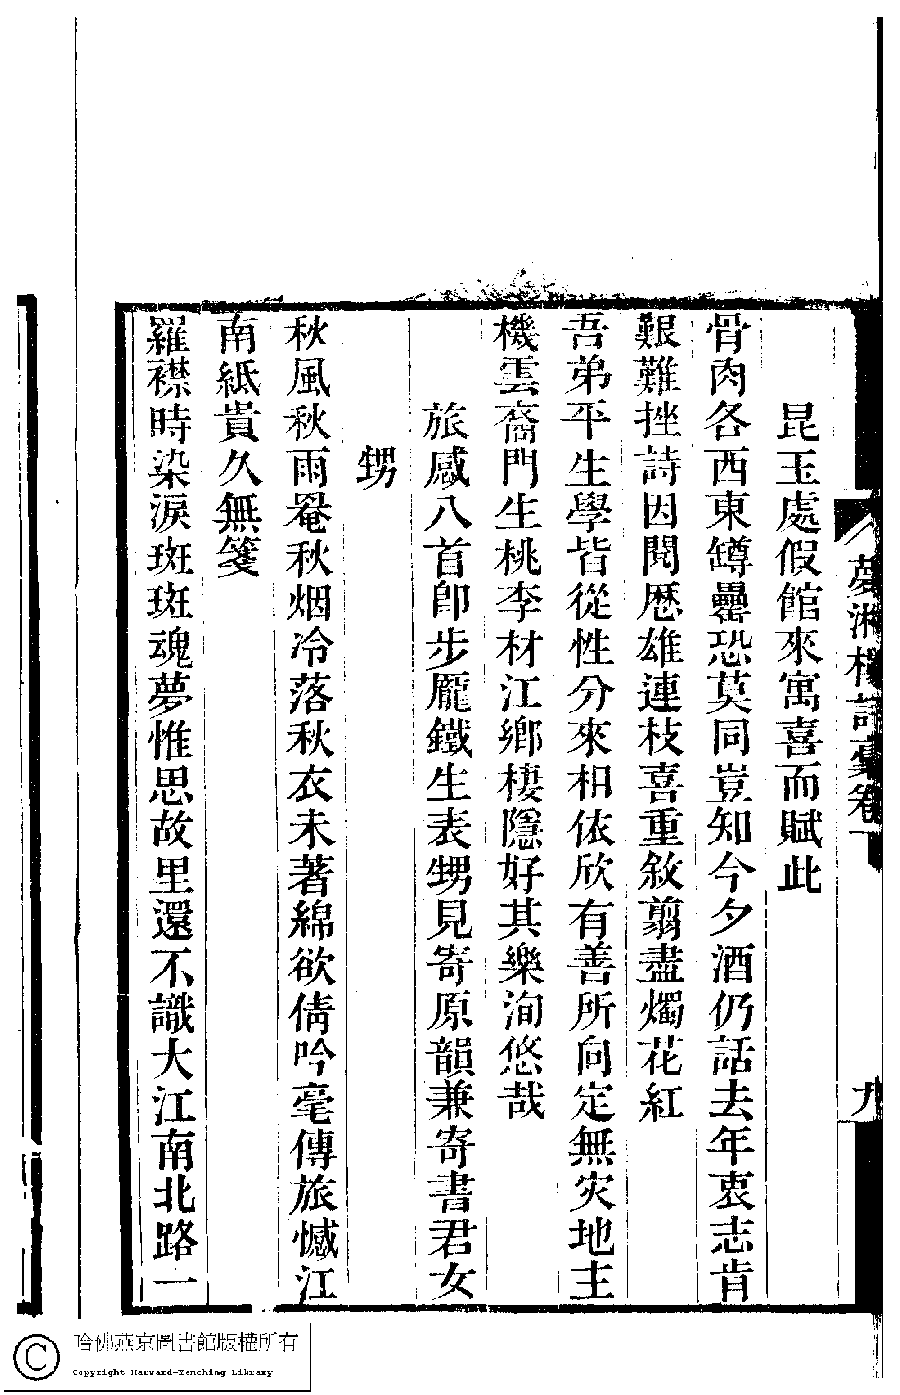 夢湘樓詩彙卷一 九
昆玉處假館來寓喜而賦此
骨肉各西東罇罍恐莫同豈知今夕酒仍話去年衷志肯
艱難挫詩因閱歷雄連枝喜重敘翦盡燭花紅
吾弟平生學皆從性分來相依欣有善所向定無災地主
機雲裔門生桃李材江鄉棲隱好其樂洵悠哉
旅感八首卽步龐鐵生表甥見寄原韻兼寄書君女
甥
秋風秋雨罨秋烟冷落秋衣未著綿欲倩吟毫傳旅憾江
南紙貴久無箋
羅襟時染淚斑斑魂夢惟思故里還不識大江南北路一
哈佛燕京圖書館版權所有
Copyright Harvard-Yenching Library